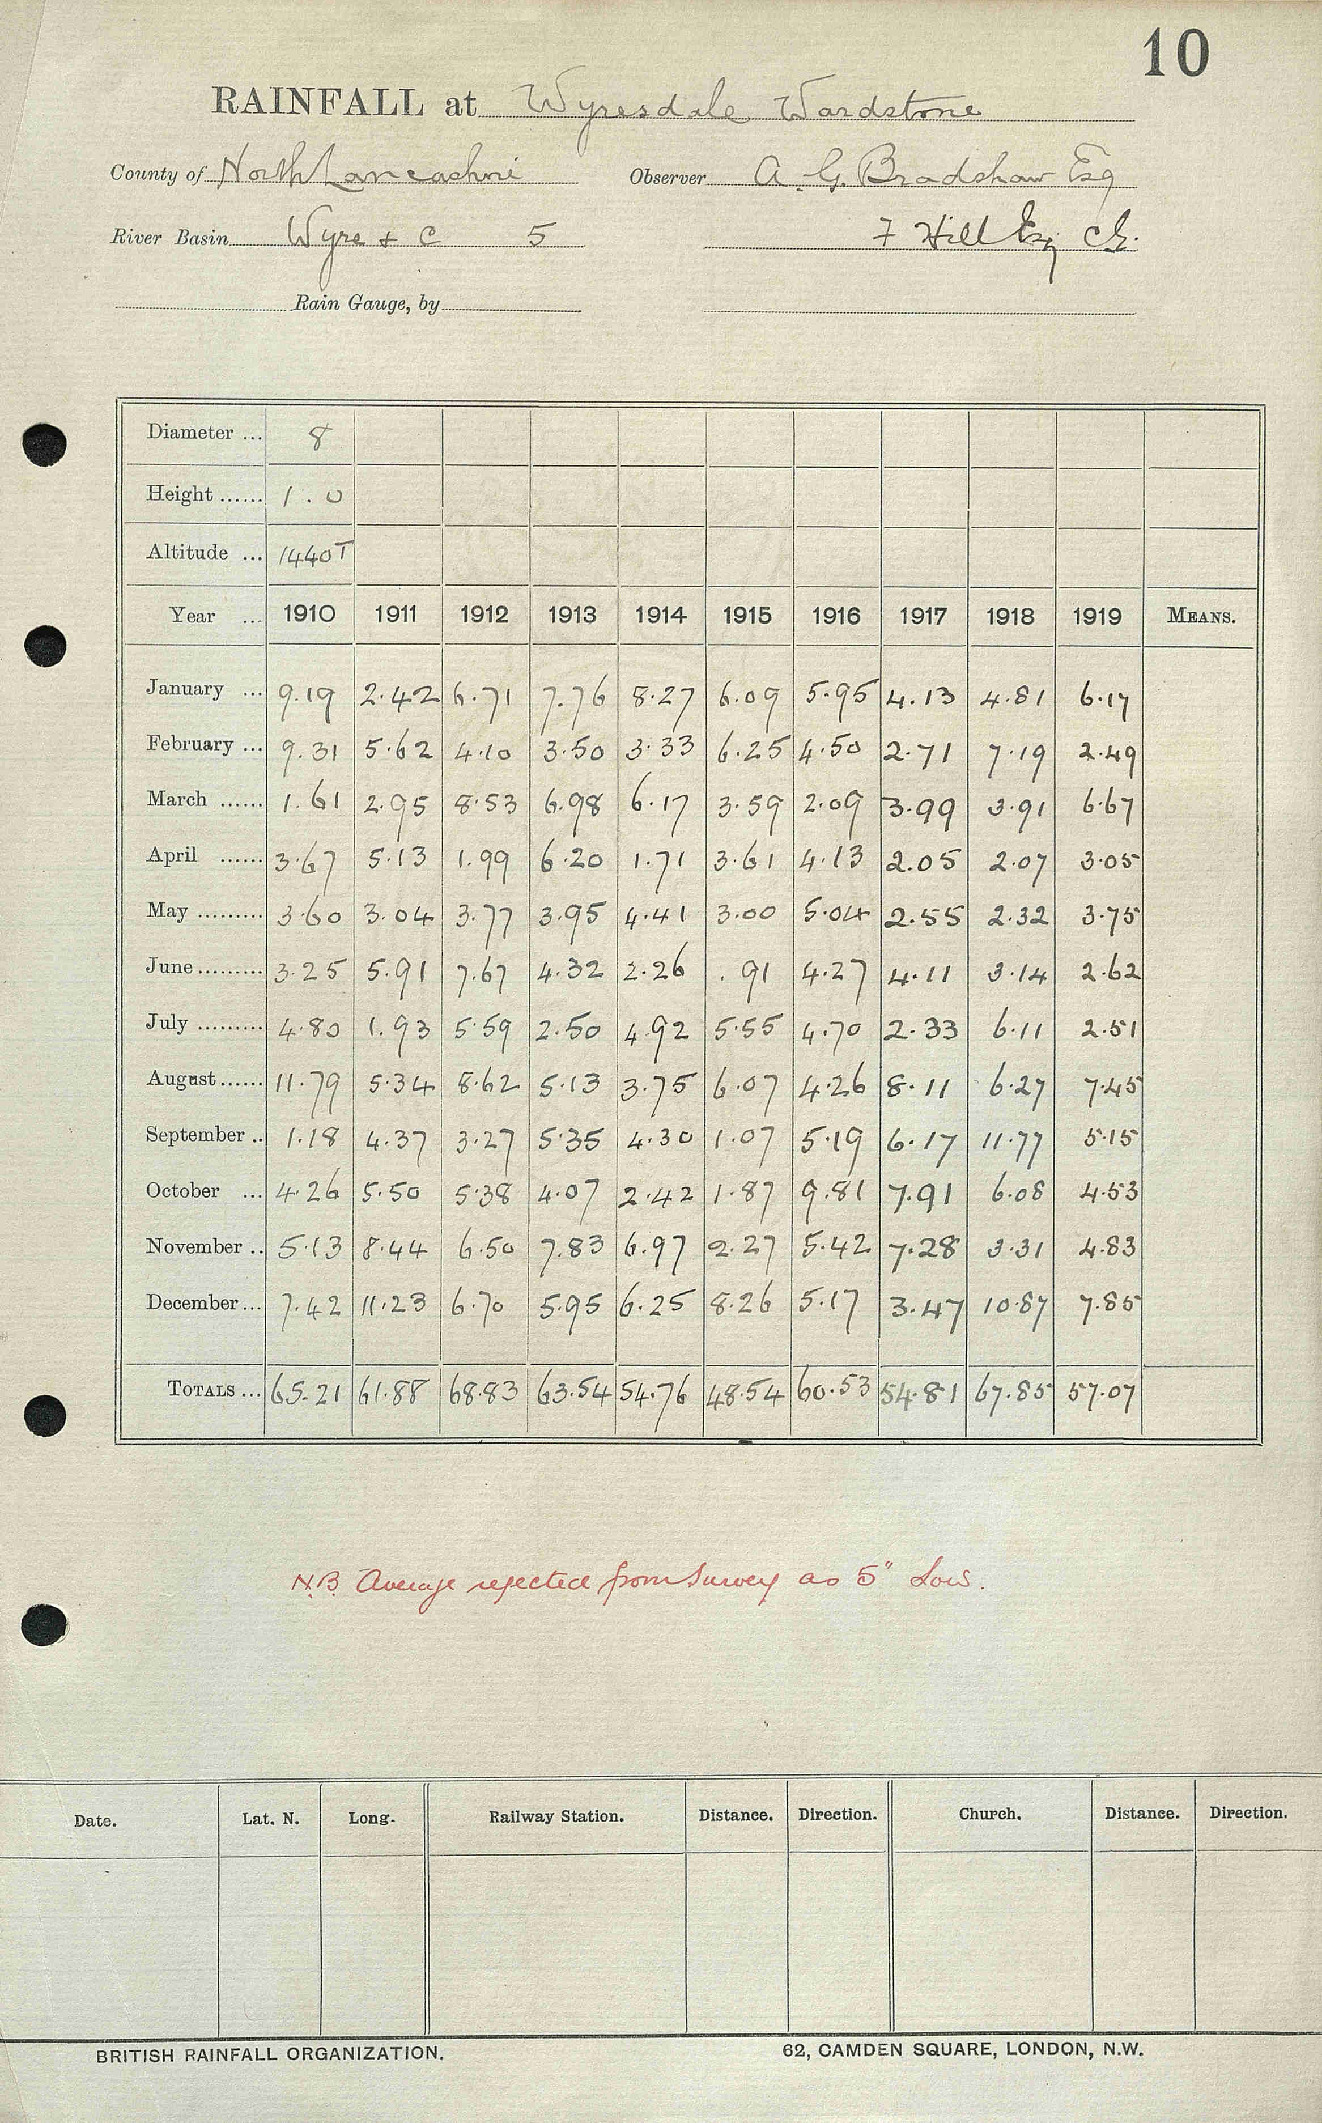 10
RAINFALL at Wyresdale Wardstone
County of North Lancashire Observer A. G. Bradshaw Esq
River Basin Wyre + C 5 F Hill Esq CE.
Rain Gauge, by
Diameter ... 8
Height ...... 1.0
Altitude ... 1440T
Year ... 1910 1911 1912 1913 1914 1915 1916 1917 1918 1919 MEANS.
January ... 9.19 2.42 6.71 7.76 8.27 6.09 5.95 4.13 4.81 6.17
February ... 9.31 5.62 4.10 3.50 3.33 6.25 4.50 2.71 7.19 2.49
March ...... 1.61 2.95 8.53 6.98 6.17 3.59 2.09 3.99 3.91 6.67
April ...... 3.67 5.13 1.99 6.20 1.71 3.61 4.13 2.05 2.07 3.05
May ......... 3.60 3.04 3.77 3.95 4.41 3.00 5.04 2.55 2.32 3.75
June ......... 3.25 5.91 7.67 4.32 2.26 .91 4.27 4.11 3.14 2.62
July ......... 4.80 1.93 5.59 2.50 4.92 5.55 4.70 2.33 6.11 2.51
August ...... 11.79 5.34 8.62 5.13 3.75 6.07 4.26 8.11 6.27 7.45
September .. 1.18 4.37 3.27 5.35 4.30 1.07 5.19 6.17 11.77 5.15
October ... 4.26 5.50 5.38 4.07 2.42 1.87 9.81 7.91 6.08 4.53
November .. 5.13 8.44 6.50 7.83 6.97 2.27 5.42 7.28 3.31 4.83
December ... 7.42 11.23 6.70 5.95 6.25 8.26 5.17 3.47 10.87 7.85
TOTALS ... 65.21 61.88 68.83 63.54 54.76 48.54 60.53 54.81 67.85 57.07
N.B. Average rejected from Survey as 5" Low.
Date. Lat. N. Long. Railway Station. Distance. Direction. Church. Distance. Direction.
BRITISH RAINFALL ORGANIZATION. 62, CAMDEN SQUARE, LONDON, N.W.